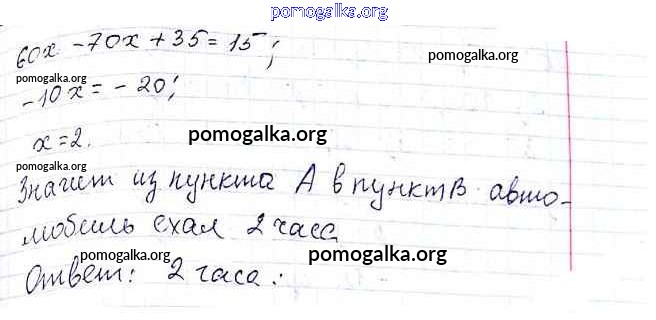 pomogalka.org
60x - 70x + 35 = 15;
pomogalka.org
pomogalka.org
-10x = -20;
x = 2.
pomogalka.org
pomogalka.org
Значит из пункта А в пункт В авто-
мобиль ехал 2 часа
pomogalka.org
pomogalka.org
Ответ: 2 часа.